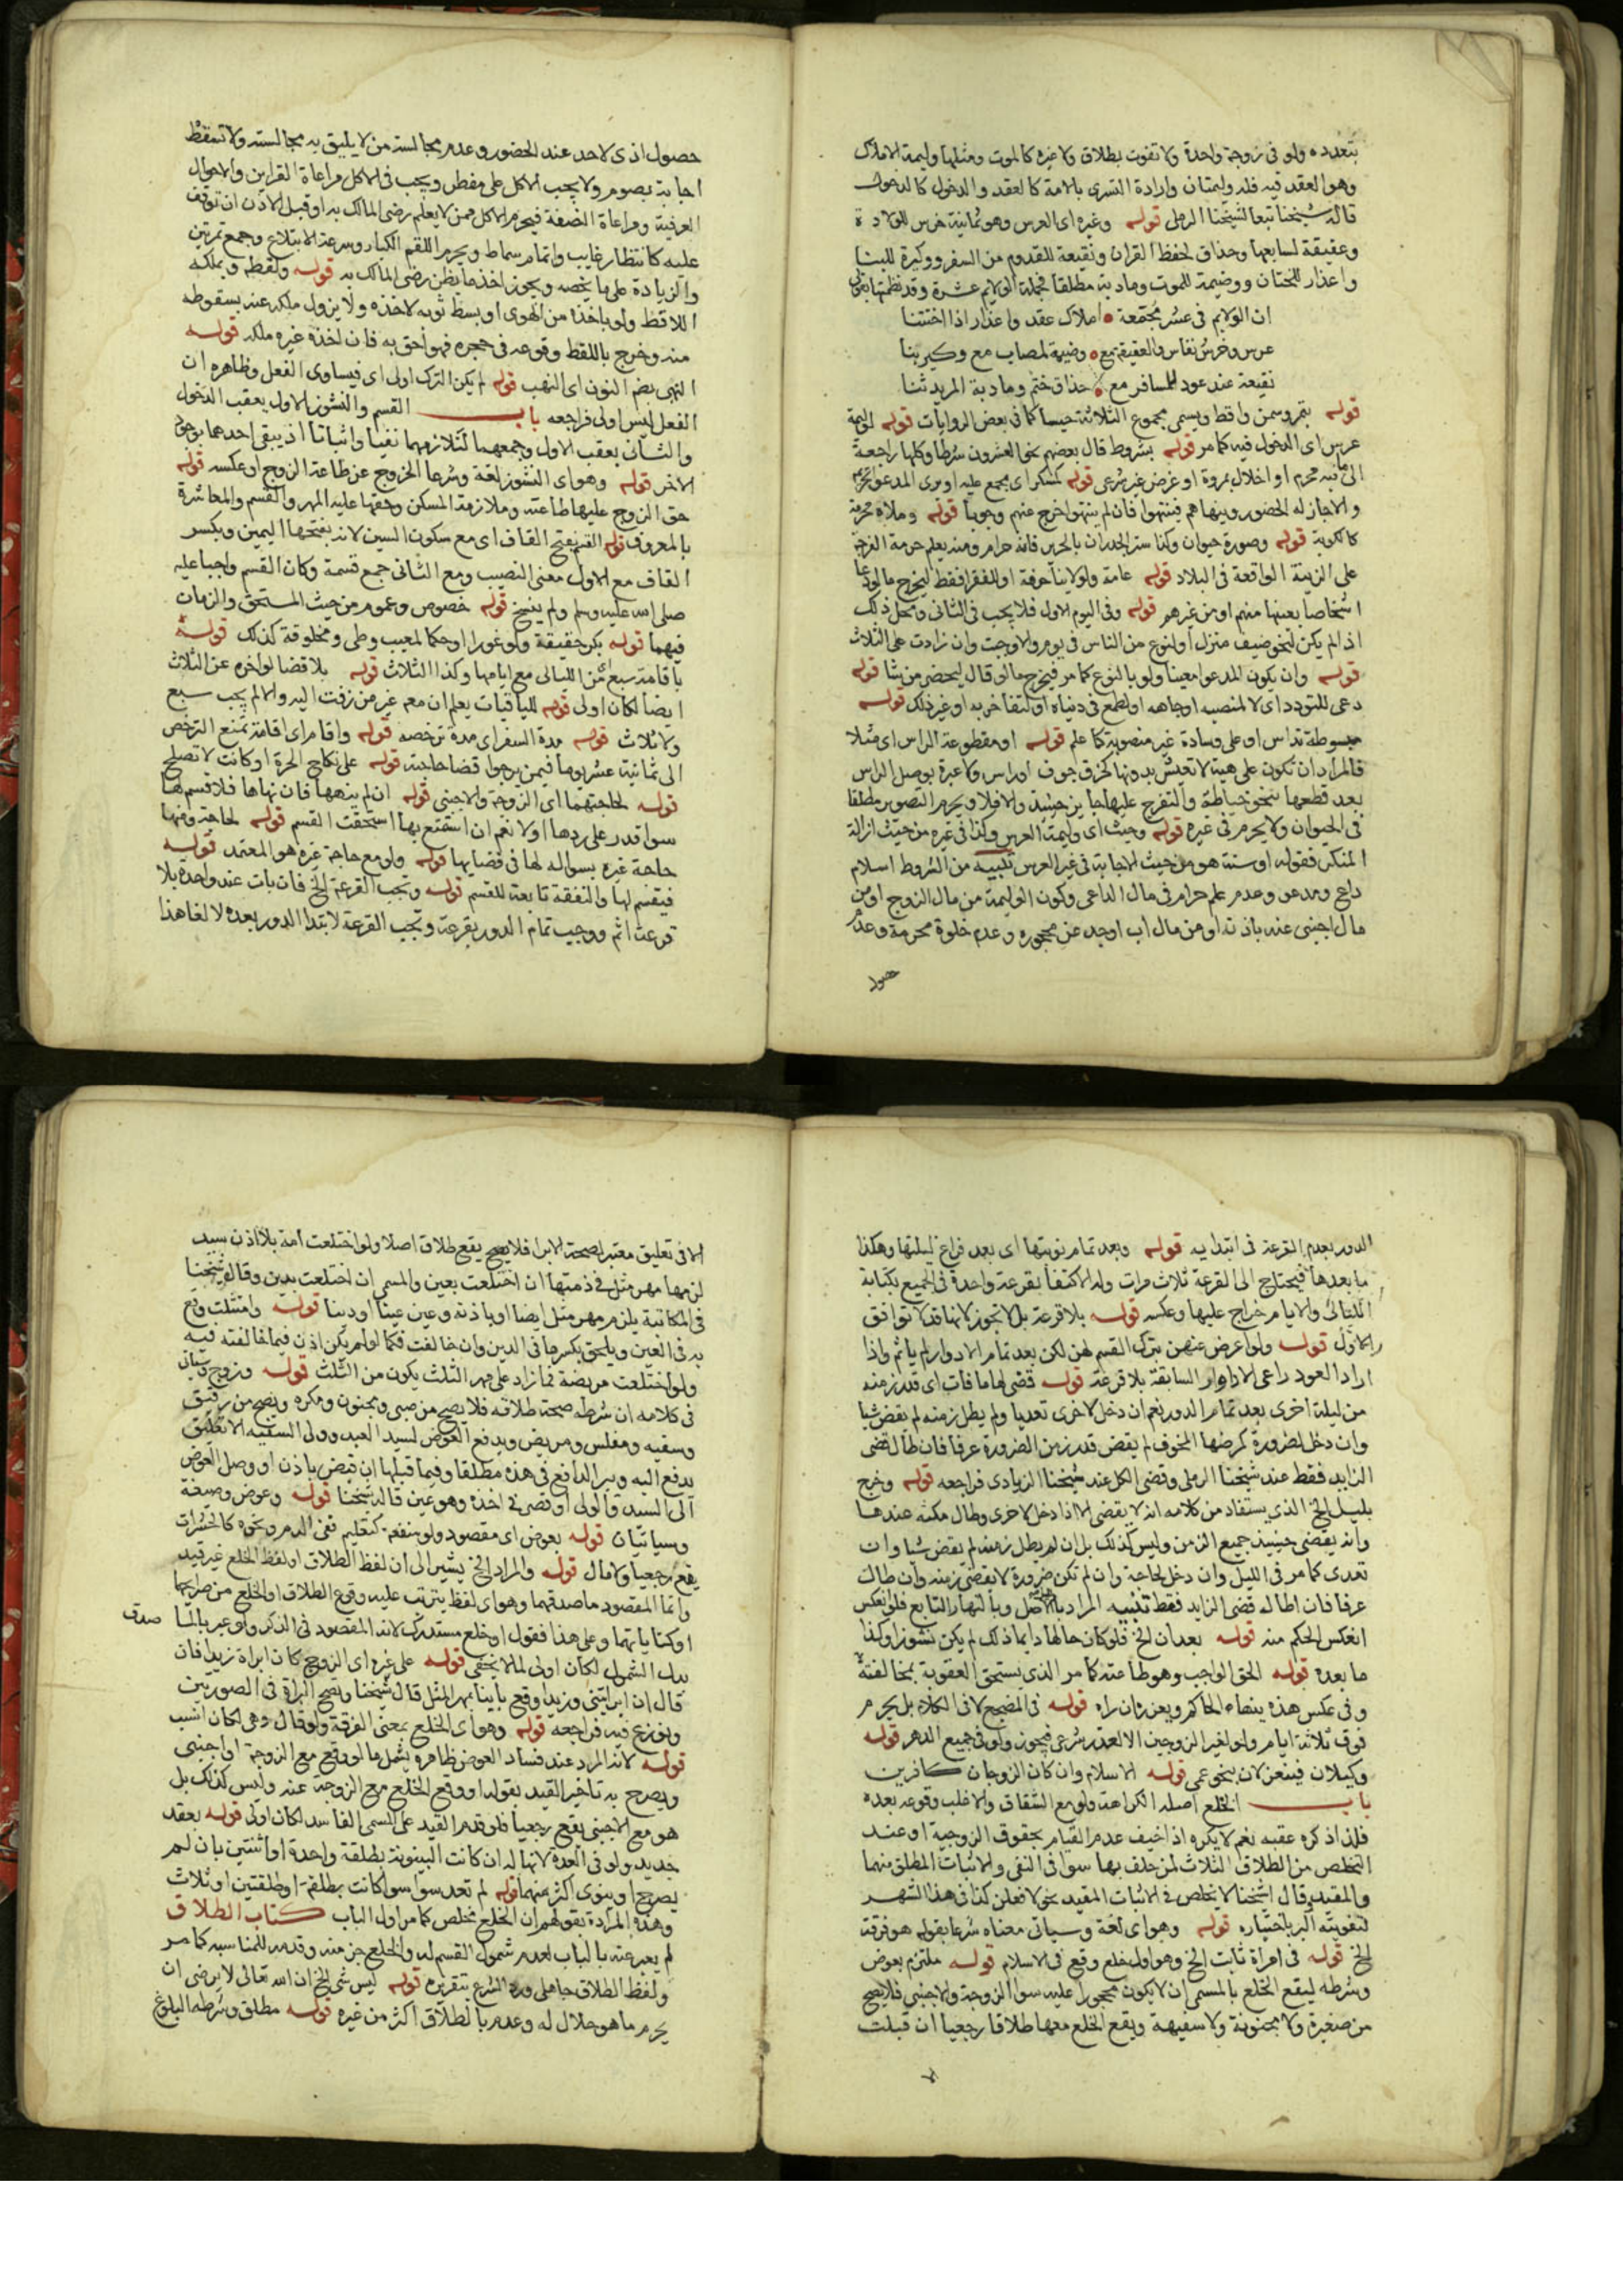 بتعدده ولو فى زوجة واحدة ولا تفوت بطلاق ولا غيره كالموت ومثلها وليمة الاملاك
وهو العقد فيه فله وليمتان وارادة التسرى بالامة كالعقد والدخول كالدخول
قاله شيخنا تبعا لشيخنا الرملى قوله وغيره اى العرس وهو ثمانية خرس للولادة
وعقيقة لسابعها وحذاق لحفظ القران ونقيعة للقدوم من السفر ووكيرة للبنا
واعذار للختان ووضيمة للموت ومادبة مطلقا فجملة الولايم عشرة وقد نظمتها بقولى
ان الولايم فى عشر مجتمعة املاك عقد واعذار اذا اختتنا
عرس وخرس نفاس والعقيقة مع وضيمة لمصاب مع وكير بنا
نقيعة عند عود للمسافر مع حذاق ختم ومادبة المريد ثنا
قوله بتمر وسمن واقط ويسمى مجموع الثلاثة حيسا كما فى بعض الروايات قوله لوليمة
عرس اى الدخول فيه كما مر قوله بشروط قال بعضهم نحو العشرون شرطا وكلها راجعة
الى ما فيه محرم او اخلال بمروة او غرض غير شرعى قوله كمنكر اى مجمع عليه او يرى المدعو تحريمه
والا جاز له الحضور وينهاهم فننتهوا فان لم ينتهوا خرج عنهم وجوبا قوله وملاه محرمة
كالكوبة قوله وصورة حيوان وكذا ستر الجدران بالحرير فانه حرام ومنه يعلم حرمة الفرجة
على الزينة الواقعة فى البلاد قوله عامة ولو لابنا حرفة او للفقرا فقط ليخرج ما لو دعا
اشخاصا بعينها منهم او من غيرهم قوله وفى اليوم الاول فلا يجب فى الثانى ومحل ذلك
اذا لم يكن لنحو ضيف منزل او لنوع من الناس فى يوم والا وجبت وان زادت على الثلاث
قوله وان يكون المدعو معينا ولو بالنوع كما مر فيخرج ما لو قال ليحضر من شا قوله
دعى للتودد اى لا لمنصبه او جاهه او لطمع فى دنياه او لتفاخر به او غير ذلك قوله
مبسوطة تداس او على وسادة غير منصوبة كما علم قوله او مقطوعة الراس اى مثلا
فالمراد ان تكون على هيئة لا تعيش بدونها كخرق جوف او راس ولا عبرة بوصل الراس
بعد قطعها بنحو خياطة والتفرج عليها جايز حينيذ والا فلا ويحرم التصوير مطلقا
فى الحيوان ولا يحرم فى غيره قوله وحيث اى وليمة العرس وكذا فى غيره من حيث ازالة
المنكر فقوله او سنة هو من حيث الاجابة فى غير العرس تنبيه من الشروط اسلام
داع ومدعو وعدم علم حرام فى مال الداعى وكون الوليمة من مال الزوج او من
مال اجنبى عنه باذنه او من مال اب او جد عن محجوره وعدم خلوة محرمة وعدم
حصول
حصول اذى لاحد عند الحضور وعدم مجالسة من لا يليق به مجالسته ولا تسقط
اجابة بصوم ولا يجب الاكل على مفطر ويجب فى الاكل مراعاة القراين والاحوال
العرفية ومراعاة النصفة فيحرم الاكل ممن لا يعلم رضى المالك به او قبل الاذن ان توقف
عليه كانتظار غايب واتمام سماط ويحرم اللقم الكبار وسرعة الابتلاع وجمع تمرتين
والزيادة على ما يخصه ويجوز اخذ ما يظن رضى المالك به قوله ولقطه ويملكه
اللاقط ولو باخذه من الهوى او بسط ثوبه لاخذه ولا يزول ملكه عنه بسقوطه
منه وخرج باللقط وقوعه فى حجره فهو احق به فان اخذه غيره ملكه قوله
النهبى بضم النون اى النهب قوله لم يكن الترك اولى اى فيساوى الفعل وظاهره ان
الفعل ليس اولى فراجعه باب القسم والنشوز الاول يعقب الدخول
والثانى يعقب الاول وجمعهما لتلازمهما نفيا واثباتا اذ يبقى احدهما بوجود
الاخر قوله وهو اى النشوز لغة وشرعا الخروج عن طاعة الزوج او عكسه قوله
حق الزوج عليها طاعته وملازمة المسكن وحقها عليه المهر والقسم والمعاشرة
بالمعروف قوله القسم بفتح القاف اى مع سكون السين لانه بفتحها اليمين وبكسر
القاف مع الاول معنى النصيب ومع الثانى جمع قسمة وكان القسم واجبا عليه
صلى الله عليه وسلم ولم ينسخ قوله خصوص وعموم من حيث المستحق والزمان
فيهما قوله بكر حقيقة ولو غورا او حكما لمعيب وطى ومخلوقة كذلك قوله
باقامة سبع اى من الليالى مع ايامها وكذا الثلاث قوله بلا قضا لو اخره عن الثلاث
ايضا لكان اولى قوله للباقيات يعلم ان معه غير من زفت اليه والا لم يجب سبع
ولا ثلاث قوله مدة السفر اى مدة ترخصه قوله واقام اى اقامة تمنع الترخص
الى ثمانية عشر يوما فيمن يرجوا قضا حاجته قوله على نكاح الحرة او كانت لا تصلح
قوله لحاجتهما اى الزوجة والاجنبى قوله ان لم ينهها فان نهاها فلا قسم لها
سوا قدر على ردها او لا نعم ان استمتع بها استحقت القسم قوله لحاجته ومنها
حاجة غيره بسواله لها فى قضايها قوله ولو مع حاجة غيره هو المعتمد قوله
فيقسم لها والنفقة تابعة للقسم قوله وتجب القرعة الخ فان بات عند واحدة بلا
قرعة اثم ووجب تمام الدور بقرعة وتجب القرعة لابتدا الدور بعده لالغا هذا
الدور بعدم القرعة فى ابتدايه قوله وبعد تمام نوبتها اى بعد فراغ ليلتها وهكذا
ما بعدها فيحتاج الى القرعة ثلاث مرات وله الاكتفا بقرعة واحدة فى الجميع بكتابة
الليالى والايام خراج عليها وعكسه قوله بلا قرعة بل لا تجوز لانها قد لا توافق
الاول قوله ولو اعرض عنهن بترك القسم لهن لكن بعد تمام الادوار لم ياثم واذا
اراد العود راعى الادوار السابقة بلا قرعة قوله قضى لها ما فات اى قدر زمنه
من ليلة اخرى بعد تمام الدور نعم ان دخل لاخرى تعديا ولم يطل زمنه لم يقض شيا
وان دخل لضرورة كمرضها المخوف لم يقض قدر زمن الضرورة عرفا فان طال قضى
الزايد فقط عند شيخنا الرملى وقضى الكل عند شيخنا الزيادى فراجعه قوله وخرج
بليل الخ الذى يستفاد من كلامه انه لا يقضى الا اذا دخل لاخرى وطال مكثه عندها
وانه يقضى حينيذ جميع الزمن وليس كذلك بل ان لم يطل زمنه لم يقض شيا وان
تعدى كما مر فى الليل وان دخل لحاجة وان لم تكن ضرورة لا يقضى زمنه وان طالت
عرفا فان اطاله قضى الزايد فقط تنبيه المراد بالليل الاصل وبالنهار التابع فلو انعكس
انعكس الحكم منه قوله بعد ان الخ فلو كان حالها دايما ذلك لم يكن نشوزا وكذا
ما بعده قوله الحق الواجب وهو طاعته كما مر الذى يستحق العقوبة بمخالفته
وفى عكس هذه ينهاه الحاكم ويعزره ان راه قوله فى المضجع لا فى الكلام بل يحرم
فوق ثلاثة ايام ولو لغير الزوجين الا لعذر شرعى فيجوز ولو فى جميع الدهر قوله
وكيلان فينعزلان بنحو عمى قوله الاسلام وان كان الزوجان كافرين
باب الخلع اصله الكراهة ولو مع الشقاق والاغلب وقوعه بعده
فلذا ذكره عقبه نعم لا يكره اذا خيف عدم القيام بحقوق الزوجية او عند
التخلص من الطلاق الثلاث لمن حلف بها سوا فى النفى والاثبات المطلق منهما
والمقيد وقال شيخنا لا يخلص فى الاثبات المقيد نحو لافعلن كذا فى هذا الشهر
لتفويته البر باختياره قوله وهو اى لغة وسياتى معناه شرعا بقوله هو فرقة
الخ قوله فى امراة ثابت الخ وهو اول خلع وقع فى الاسلام قوله ملتزم بعوض
وشرطه ليقع الخلع بالمسمى ان لا يكون محجورا عليه سوا الزوجة والاجنبى فلا يصح
من صغيرة ولا مجنونة ولا سفيهة ويقع الخلع معها طلاقا رجعيا ان قبلت
الا
الا فى تعليق معتبر لصحة الابرا فلا يصح يقع طلاق اصلا ولو اختلعت امة بلا اذن سيد
لزمها مهر مثل فى ذمتها ان اختلعت بعين والمسمى ان اختلعت بدين وقال شيخنا
فى المكاتبة يلزم مهر مثل ايضا او باذنه وعين عينا او دينا قوله وامتثلت وقع
به فى العين وتعلق بكسبها فى الدين وان خالفت فكما لو لم يكن اذن فيما خالفته فيه
ولو اختلعت مريضة فما زاد على مهر الثلث يكون من الثلث قوله وزوج وسياتى
فى كلامه ان شرطه صحة طلاقه فلا يصح من صبى ومجنون ومكره ويصح من رقيق
وسفيه ومفلس ومريض ويدفع العوض لسيد العبد وولى السفيه الا تعليق
بدفع اليه ويبرا الدافع فى هذه مطلقا وفيما قبلها ان قبض باذن او وصل العوض
الى السيد والولى او قصر فى اخذه وهو عين قاله شيخنا قوله وعوض وصيغة
وسياتيان قوله بعوض اى مقصود ولو منفعة كتعليم ففى الدم ونحوه كالحشرات
يقع رجعيا ولا مال قوله والمراد الخ يشير الى ان لفظ الطلاق او لفظ الخلع غير قيد
وانما المقصود ما صدقهما وهو اى لفظ يترتب عليه وقوع الطلاق او الخلع من صرايحهما
او كناياتهما وعلى هذا فقول او خلع مستدرك لانه المقصود فى الذكر ولو عبر بالما صدق
بدل الشمول لكان اولى لما لا يخفى قوله على غيره اى الزوج كان ابراة زيدا فان
قال ان ابراتينى وزيدا وقع باينا بمهر المثل قال شيخنا وتصح البراة فى الصورتين
ونوزع فيه فراجعه قوله وهو اى الخلع بمعنى الفرقة ولو قال وهى لكان انسب
قوله لانه المراد عند فساد العوض ظاهره يشمل ما لو وقع مع الزوجة او اجنبى
ويصرح به تاخير القيد بقوله او وقع الخلع مع الزوجة عنه وليس كذلك بل
هو مع الاجنبى يقع رجعيا فلو قدم القيد على المسمى الفاسد لكان اولى قوله بعقد
جديد ولو فى العدة لانها له ان كانت البينونة بطلقة واحدة او اثنتين بان لم
يصرح او ينوى اكثر منهما قوله لم تعد سوا سوا كانت بطلقة او طلقتين او ثلاث
وهذه المرادة بقولهم ان الخلع مخلص كما مر اول الباب كتاب الطلاق
لم يعبر عنه بالباب لعدم شمول القسم له والخلع جز منه وقدم للمناسبة كما مر
ولفظ الطلاق جاهلى ورد الشرع بتقريره قوله ليس شى الخ ان الله تعالى لا يرضى ان
يحرم ما هو حلال له وعدم بالطلاق اكثر من غيره قوله مطلق وشرطه البلوغ